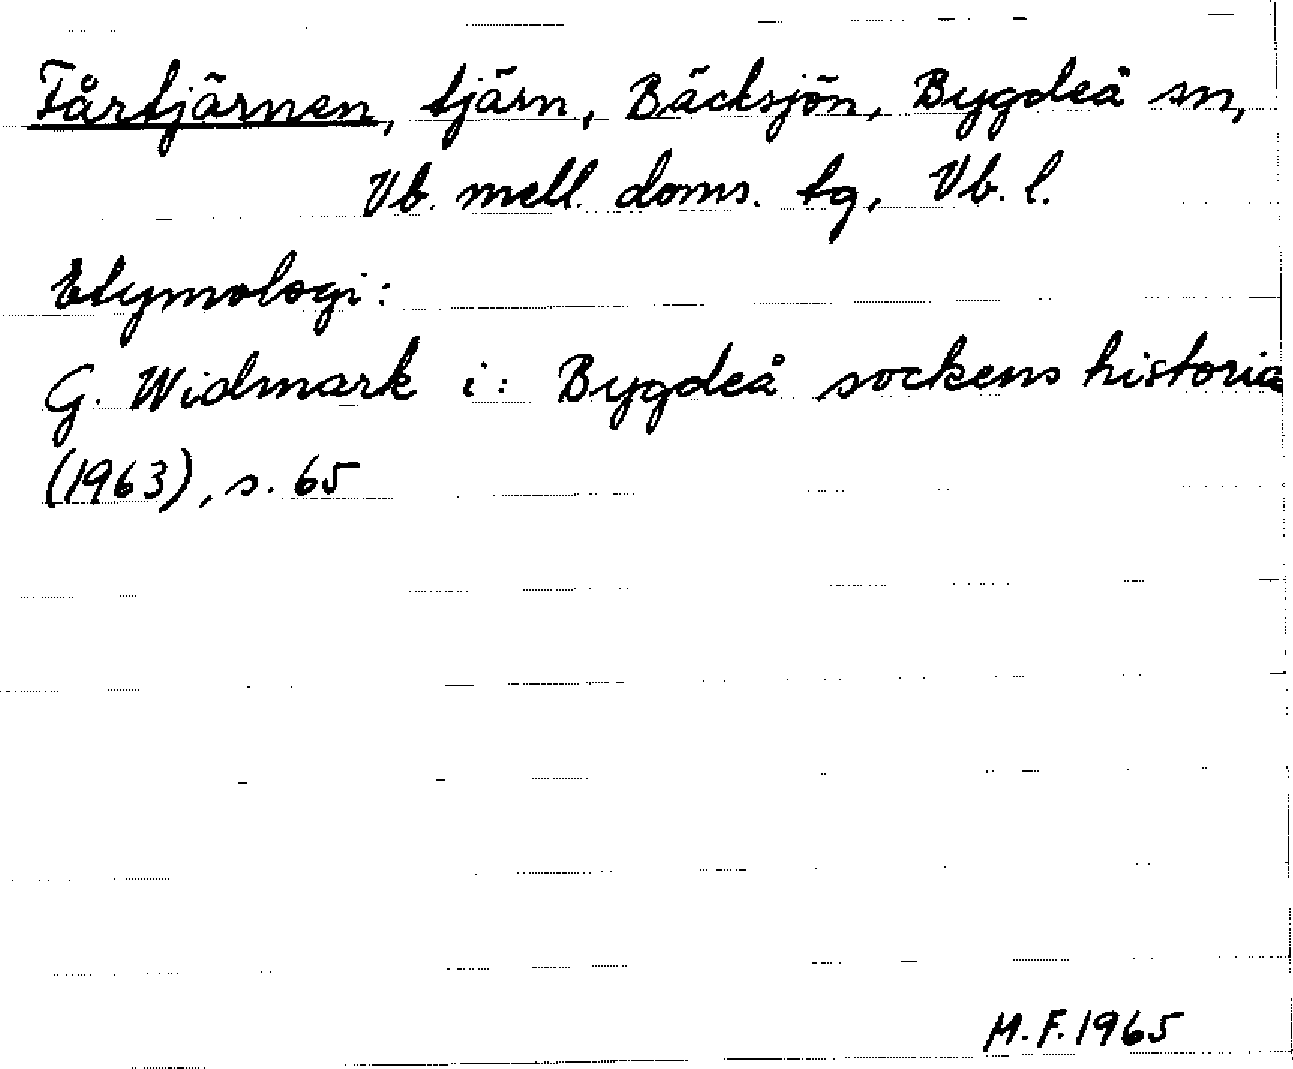 Fårtjärnen, tjärn, Bäcksjön, Bygdeå sn,
Vb. mell. doms. tg, Vb. l.
Etymologi:
G. Widmark i: Bygdeå sockens historia
(1963), s. 65
M.F. 1965